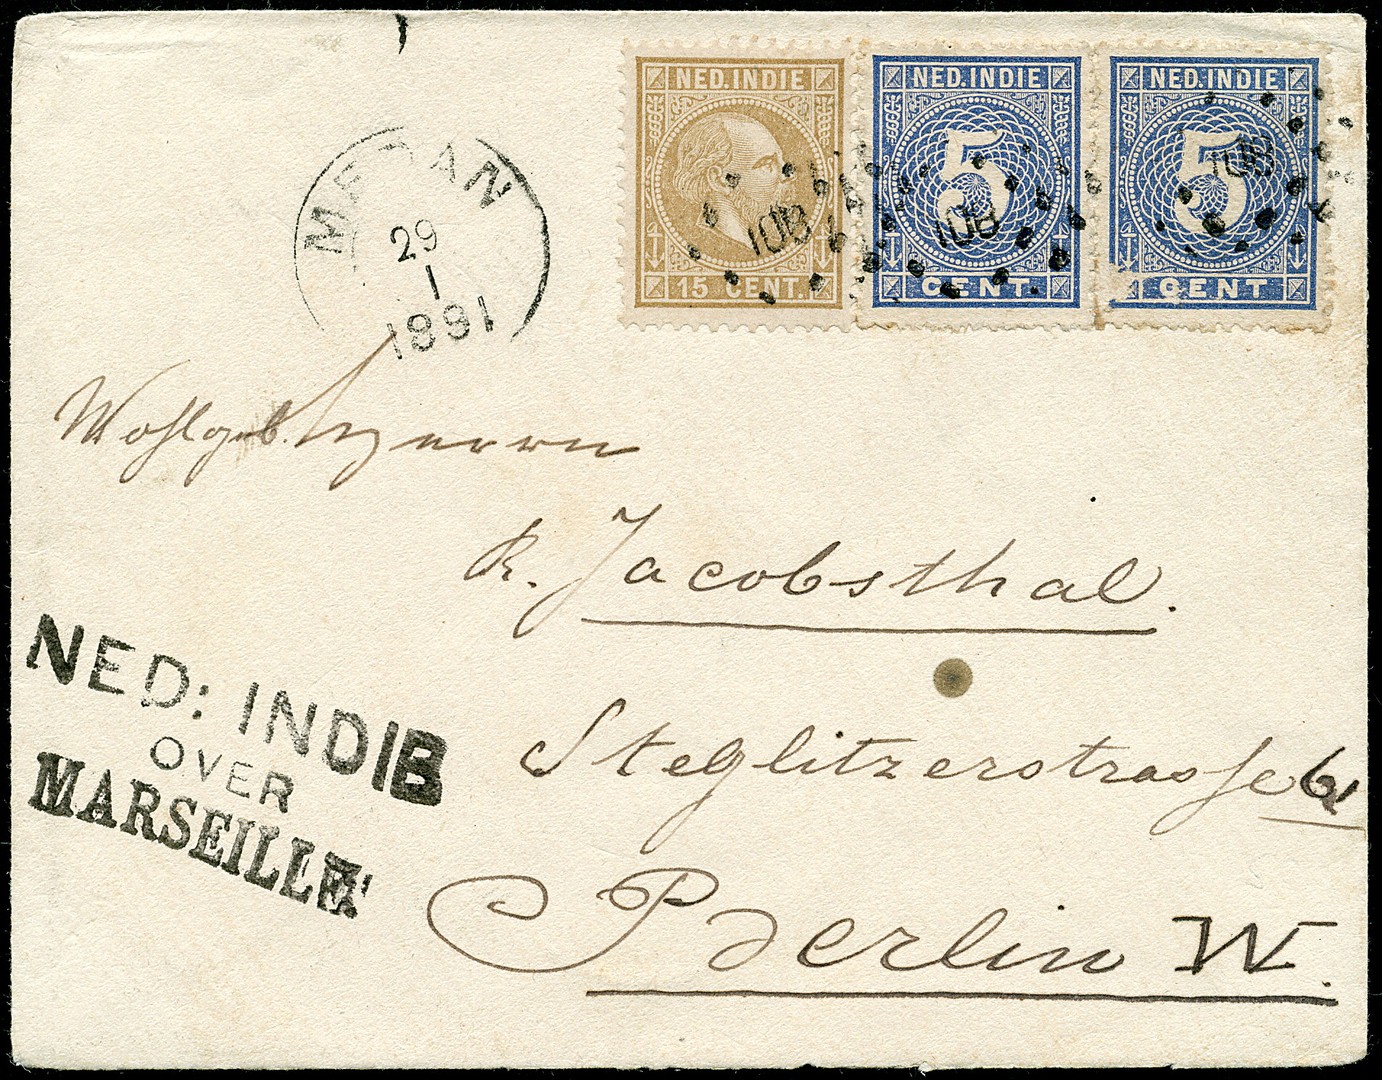 NED. INDIE
15 CENT.
NED. INDIE
5
CENT.
NED. INDIE
5
CENT
MEDAN
29
1
1891
Wohlgeb. Herrn
R. Jacobsthal.
Steglitzerstrasse
Berlin W.
NED: INDIE
OVER
MARSEILLE